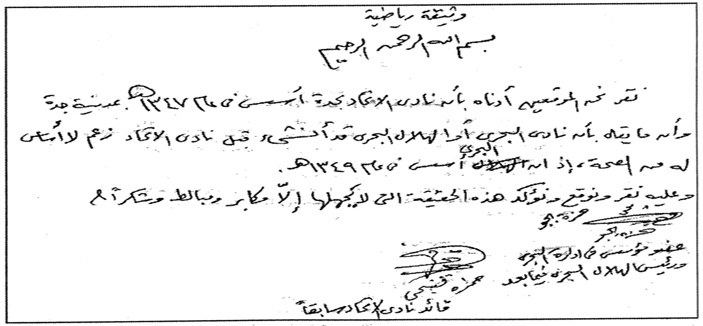 وثيقة رياضية
بسم الله الرحمن الرحيم
نقر نحن الموقعين أدناه بأن نادى الاتحاد بجدة أسس فى عام ١٣٤٧هـ بمدينة جدة
وأن ما يقال بأن نادى البحرى أو الهلال البحرى قد أنشىء قبل نادى الاتحاد زعم لا أساس
له من الصحة، إذ ان البحرى أسس فى عام ١٣٤٩هـ.
وعليه نقر ونوقع ونؤكد هذه الحقيقة التى لا يجهلها إلاّ مكابر ومغالط وشكراً
عضو مؤسس فى ادارة البحرى
ورئيس الهلال البحرى فيما بعد
حمزه فتيحى
قائد نادى الاتحاد سابقاً